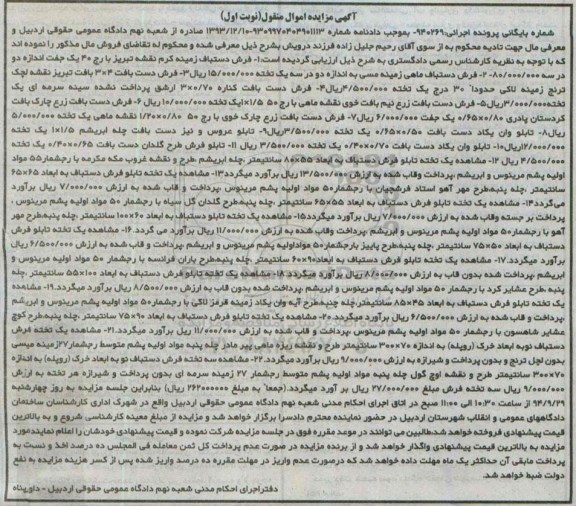 آگهی مزایده اموال منقول(نوبت اول)
شماره بایگانی پرونده اجرائی:940269- بموجب دادنامه شماره 9309970404901113-1393/12/10 صادره از شعبه نهم دادگاه عمومی حقوقی اردبیل و
معرفی مال جهت تادیه محکوم به از سوی آقای رحیم جلیل زاده فرزند درویش بشرح ذیل معرفی شده و محکوم له تقاضای فروش مال مذکور را نموده اند
که با توجه به نظریه کارشناس رسمی دادگستری به شرح ذیل ارزیابی گردیده است:1- فرش دستباف زمینه کرم نقشه تبریز با رج 40 یک جفت اندازه دو
در سه 80/000/000- 2- فرش دستباف ماهی زمینه مسی به اندازه دو در سه یک تخته 15/000/000ریال3- فرش دست بافت 4×3 بافت تبریز نقشه لچک
ترنج زمینه لاکی حدودا 30 درج یک تخته 4/500/000ریال4- فرش دست بافت کناره 70/×3 ارشق پرداخت نشده سینه سرمه ای یک
تخته3/000/000ریال5- فرش دست بافت زرع نیم بافت خوی نقشه ماهی با رج 50 1/5×1یک تخته 10/000/000 ریال 6- فرش دست بافت زرع چارک بافت
کردستان پادری 0/80×0/65 یک جفت 6/000/000 ریال7- فرش دست بافت زرع چارک خوی با رج 50 0/80×1/20 نقشه ماهی یک تخته 5/000/000
ریال8- تابلو وان یکاد دست بافت 0/50×0/65 یک تخته 3/500/000ریال9- تابلو عروس و نیز دست بافت چله ابریشم 1/5×1 یک تخته
12/000/000ریال10- تابلو وان یکاد دست بافت 0/70×0/40 یک تخته 3/500/000 ریال 11- تابلو فرش طرح گلدان دست بافت 0/65×0/40 یک تخته
4/500/000 ریال 12- مشاهده یک تخته تابلو فرش دستباف به ابعاد 55×80 سانتیمتر ،چله ابریشم ،طرح و نقشه غروب مکه مکرمه با رجشمار55 مواد
اولیه پشم مرینوس و ابریشم ،پرداخت وقاب شده به ارزش 13/500/000 ریال برآورد میگردد13- مشاهده یک تخته تابلو فرش دستباف به ابعاد 65×65
سانتیمتر ،چله پنبه،طرح مهر آهو استاد فرشچیان با رجشمار50 مواد اولیه پشم مرینوس ،پرداخت و قاب شده به ارزش 7/000/000 ریال برآورد
می‌گردد14- مشاهده یک تخته تابلو فرش دستباف به ابعاد 55×65 سانتیمتر ،چله پنبه،طرح گلدان گل سیاه با رجشمار 50 مواد اولیه پشم مرینوس ،
پرداخت بر جسته وقاب شده به ارزش 7/000/000 ریال برآورد میگردد15- مشاهده یک تخته تابلو دستباف به ابعاد 60×100 سانتیمتر ،چله پنبه،طرح مهر
آهو با رجشمار50 مواد اولیه پشم مرینوس و ابریشم ،پرداخت وقاب شده به ارزش 11/000/000 ریال برآورد می گردد. 16- مشاهده یک تخته تابلو فرش
دستباف به ابعاد 50×75 سانتیمتر ،چله پنبه،طرح پاییز بارجشمار50 مواداولیه پشم مرینوس و ابریشم ،پرداخت و قاب شده به ارزش 6/500/000 ریال
برآورد میگردد.17- مشاهده یک تخته تابلو فرش دستباف به ابعاد90×60 سانتیمتر ،چله پنبه،طرح باران فرانسه با رجشمار 50 مواد اولیه مرینوس و
ابریشم ،پرداخت شده بدون قاب به ارزش 8/000/000 ریال برآورد میگردد.18-مشاهده یک تخته تابلو فرش دستباف به ابعاد 100×55 سانتیمتر ،چله
پنبه ،طرح عشایر کرد با رجشمار 50 مواد اولیه پشم مرینوس و ابریشم ،پرداخت شده بدون قاب به ارزش 8/500/000 ریال برآورد میگردد.19-مشاهده
یک تخته تابلو فرش دستباف به ابعاد 45×85 سانتیمتر،چله پنبه،طرح آیه وان یکاد زمینه قرمز لاکی با رجشمار50 مواد اولیه پشم مرینوس و ابریشم
،پرداخت و قاب شده به ارزش 6/500/000 ریال برآورد میگردد.20- مشاهده یک تخته تابلو فرش دستباف به ابعاد 90×75 سانتیمتر ،چله پنبه،طرح کوچ
عشایر شاهسون با رجشمار 50 مواد اولیه پشم مرینوس ،پرداخت و قاب شده به ارزش 11/000/000 ریال برآورد میگردد.21- مشاهده یک تخته فرش
دستباف نوبه ابعاد خرک (روپله) به اندازه 70×300 سانتیمتر طرح و نقشه ریزه ماهی پیر مادر چله پنبه مواد اولیه پشم متوسط رجشمار27زمینه میسی
بدون لچل ترنج و بدون پرداخت و شیرازه به ارزش 9/000/000 ریال برآورد میگردد.22- مشاهده سه تخته فرش دستباف نو به ابعاد خرک (روپله) به اندازه
70×300 سانتیمتر طرح و نقشه اوچ گول چله پنبه مواد اولیه پشم متوسط رجشمار 27 زمینه سرمه ای بدون پرداخت و شیرازه هر تخته به ارزش
9/000/000 ریال سه تخته فرش مبلغ 27/000/000 ریال بر آورد میگردد.(جمعا به مبلغ 262000000 ریال) بنابراین جلسه مزایده به روز چهارشنبه
94/9/29 از ساعت 10:30 الی 11:00 صبح در اتاق اجرای احکام مدنی شعبه نهم دادگاه عمومی حقوقی اردبیل واقع در شهرک اداری کارشناسان ساختمان
دادگاههای عمومی و انقلاب شهرستان اردبیل در حضور نماینده محترم دادسرا برگزار خواهد شد و مزایده از مبلغ معینه کارشناسی شروع و به بالاترین
قیمت پیشنهادی فروخته خواهد شد،طالبین می توانند در موعد مقرره فوق در جلسه مزایده شرکت نموده و قیمت پیشنهادی خودشان را اعلام نمایند،مورد
مزایده به بالاترین قیمت پیشنهادی واگذار خواهد شد و از برنده مزایده در صورت عدم پرداخت کل ثمن معامله فی المجلس ده درصد اخذ و نست به
پرداخت مابقی آن حداکثر یک ماه مهلت داده خواهد شد که درصورت عدم واریز در مهلت مقرره ده درصد واریز شده پس از کسر هزینه مزایده به نفع
دولت ضبط خواهد شد.
دفتراجرای احکام مدنی شعبه نهم دادگاه عمومی حقوقی اردبیل - داورپناه